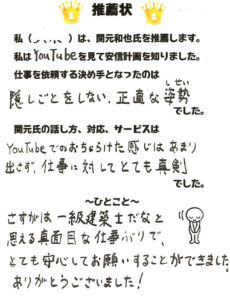 推薦状
私（　　）は、関元和也氏を推薦します。
私はYouTubeを見て安信計画を知りました。
仕事を依頼する決め手となったのは
隠しごとをしない、正直な姿勢
しせい
でした。
関元氏の話し方、対応、サービスは
YouTubeでのおちゃらけた感じはあまり
出さず、仕事に対してとても真剣
でした。
～ひとこと～
さすがは一級建築士だなと
思える真面目な仕事ぶりで、
とても安心してお願いすることができました。
ありがとうございました！